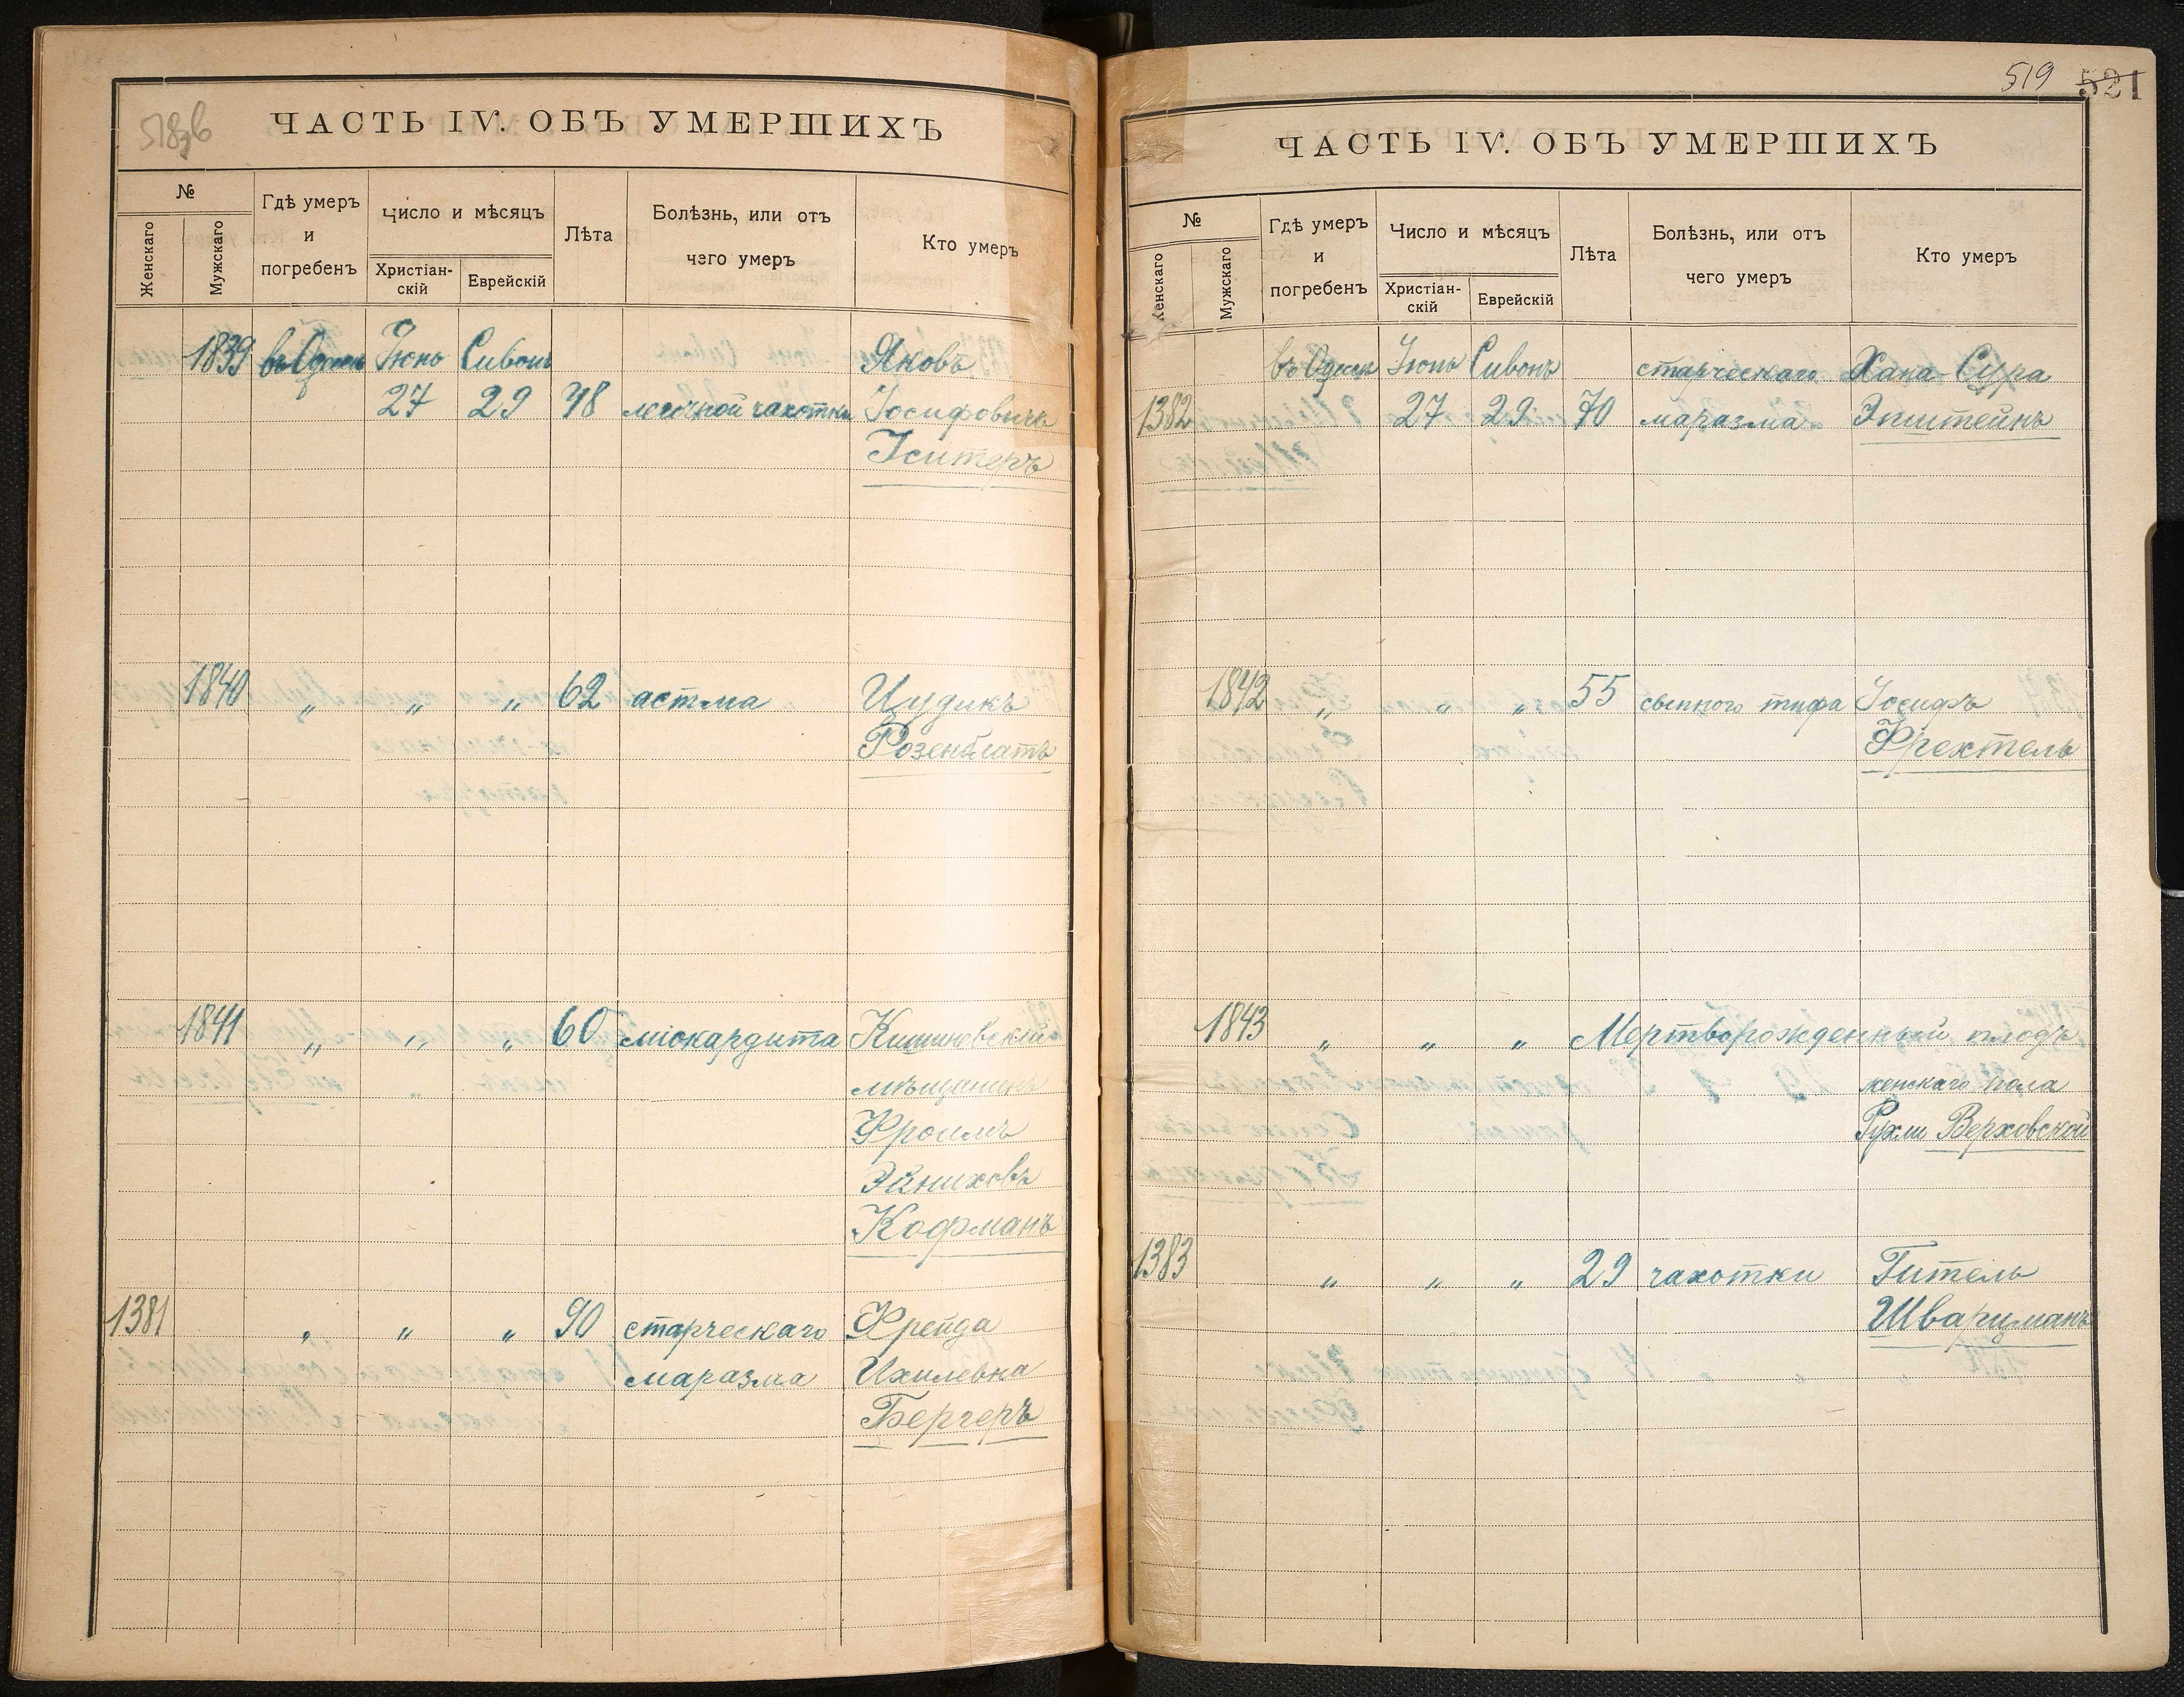 518об
ЧАСТЬ IV. ОБЪ УМЕРШИХЪ
№
Женскаго
Мужскаго
Гдѣ умеръ
и
погребенъ
Число и мѣсяцъ
Христіан-
скій
Еврейскій
Лѣта
Болѣзнь, или отъ
чего умеръ
Кто умеръ
1839 въ Одессѣ Іюнь Сивонъ Яковъ
27 29 48 легочной чахотки Іосифовичъ
1840 „ „ „ 62 астма Ицдикъ
Розенблатъ
1841 „ „ „ 60 міокардита Кишиневскій
мѣщанинъ
Фроимъ
Эйниховъ
Кофманъ
1381 „ „ „ 90 старческаго Фрейда
маразма Ихилевна
Бергеръ
519 521
ЧАСТЬ IV. ОБЪ УМЕРШИХЪ
№
Женскаго
Мужскаго
Гдѣ умеръ
и
погребенъ
Число и мѣсяцъ
Христіан-
скій
Еврейскій
Лѣта
Болѣзнь, или отъ
чего умеръ
Кто умеръ
въ Одессѣ Іюнь Сивонъ старческаго Хана-Сура
1382 27 29 70 маразма Эпштейнъ
1842 „ „ „ 55 сыпного тифа Іосифъ
Фрехтель
1843 „ „ „ Мертворожденный плодъ
женскаго пола
Рухли Верховской
1383 „ „ „ 29 чахотки Гитель
Шварцманъ